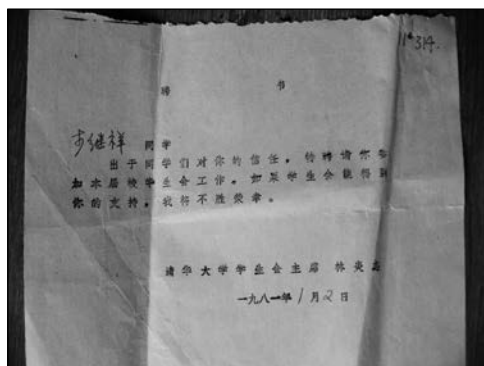 11#314.
聘 书
步继祥 同学
出于同学们对你的信任，特聘请你参
加本届校学生会工作。如果学生会能得到
你的支持，我将不胜荣幸。
清华大学学生会主席 林炎志
一九八一年1月2日